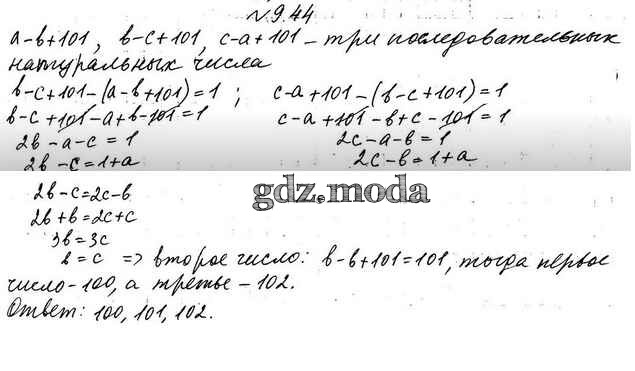 № 9.44
a-b+101, b-c+101, c-a+101 – три последовательных
натуральных числа
b-c+101-(a-b+101)=1 ; c-a+101-(b-c+101)=1
b-c+101-a+b-101=1 c-a+101-b+c-101=1
2b-a-c=1 2c-a-b=1
2b-c=1+a 2c-b=1+a
2b-c=2c-b
gdz.moda
2b+b=2c+c
3b=3c
b=c => второе число: b-b+101=101, тогда первое
число-100, а третье-102.
Ответ: 100, 101, 102.